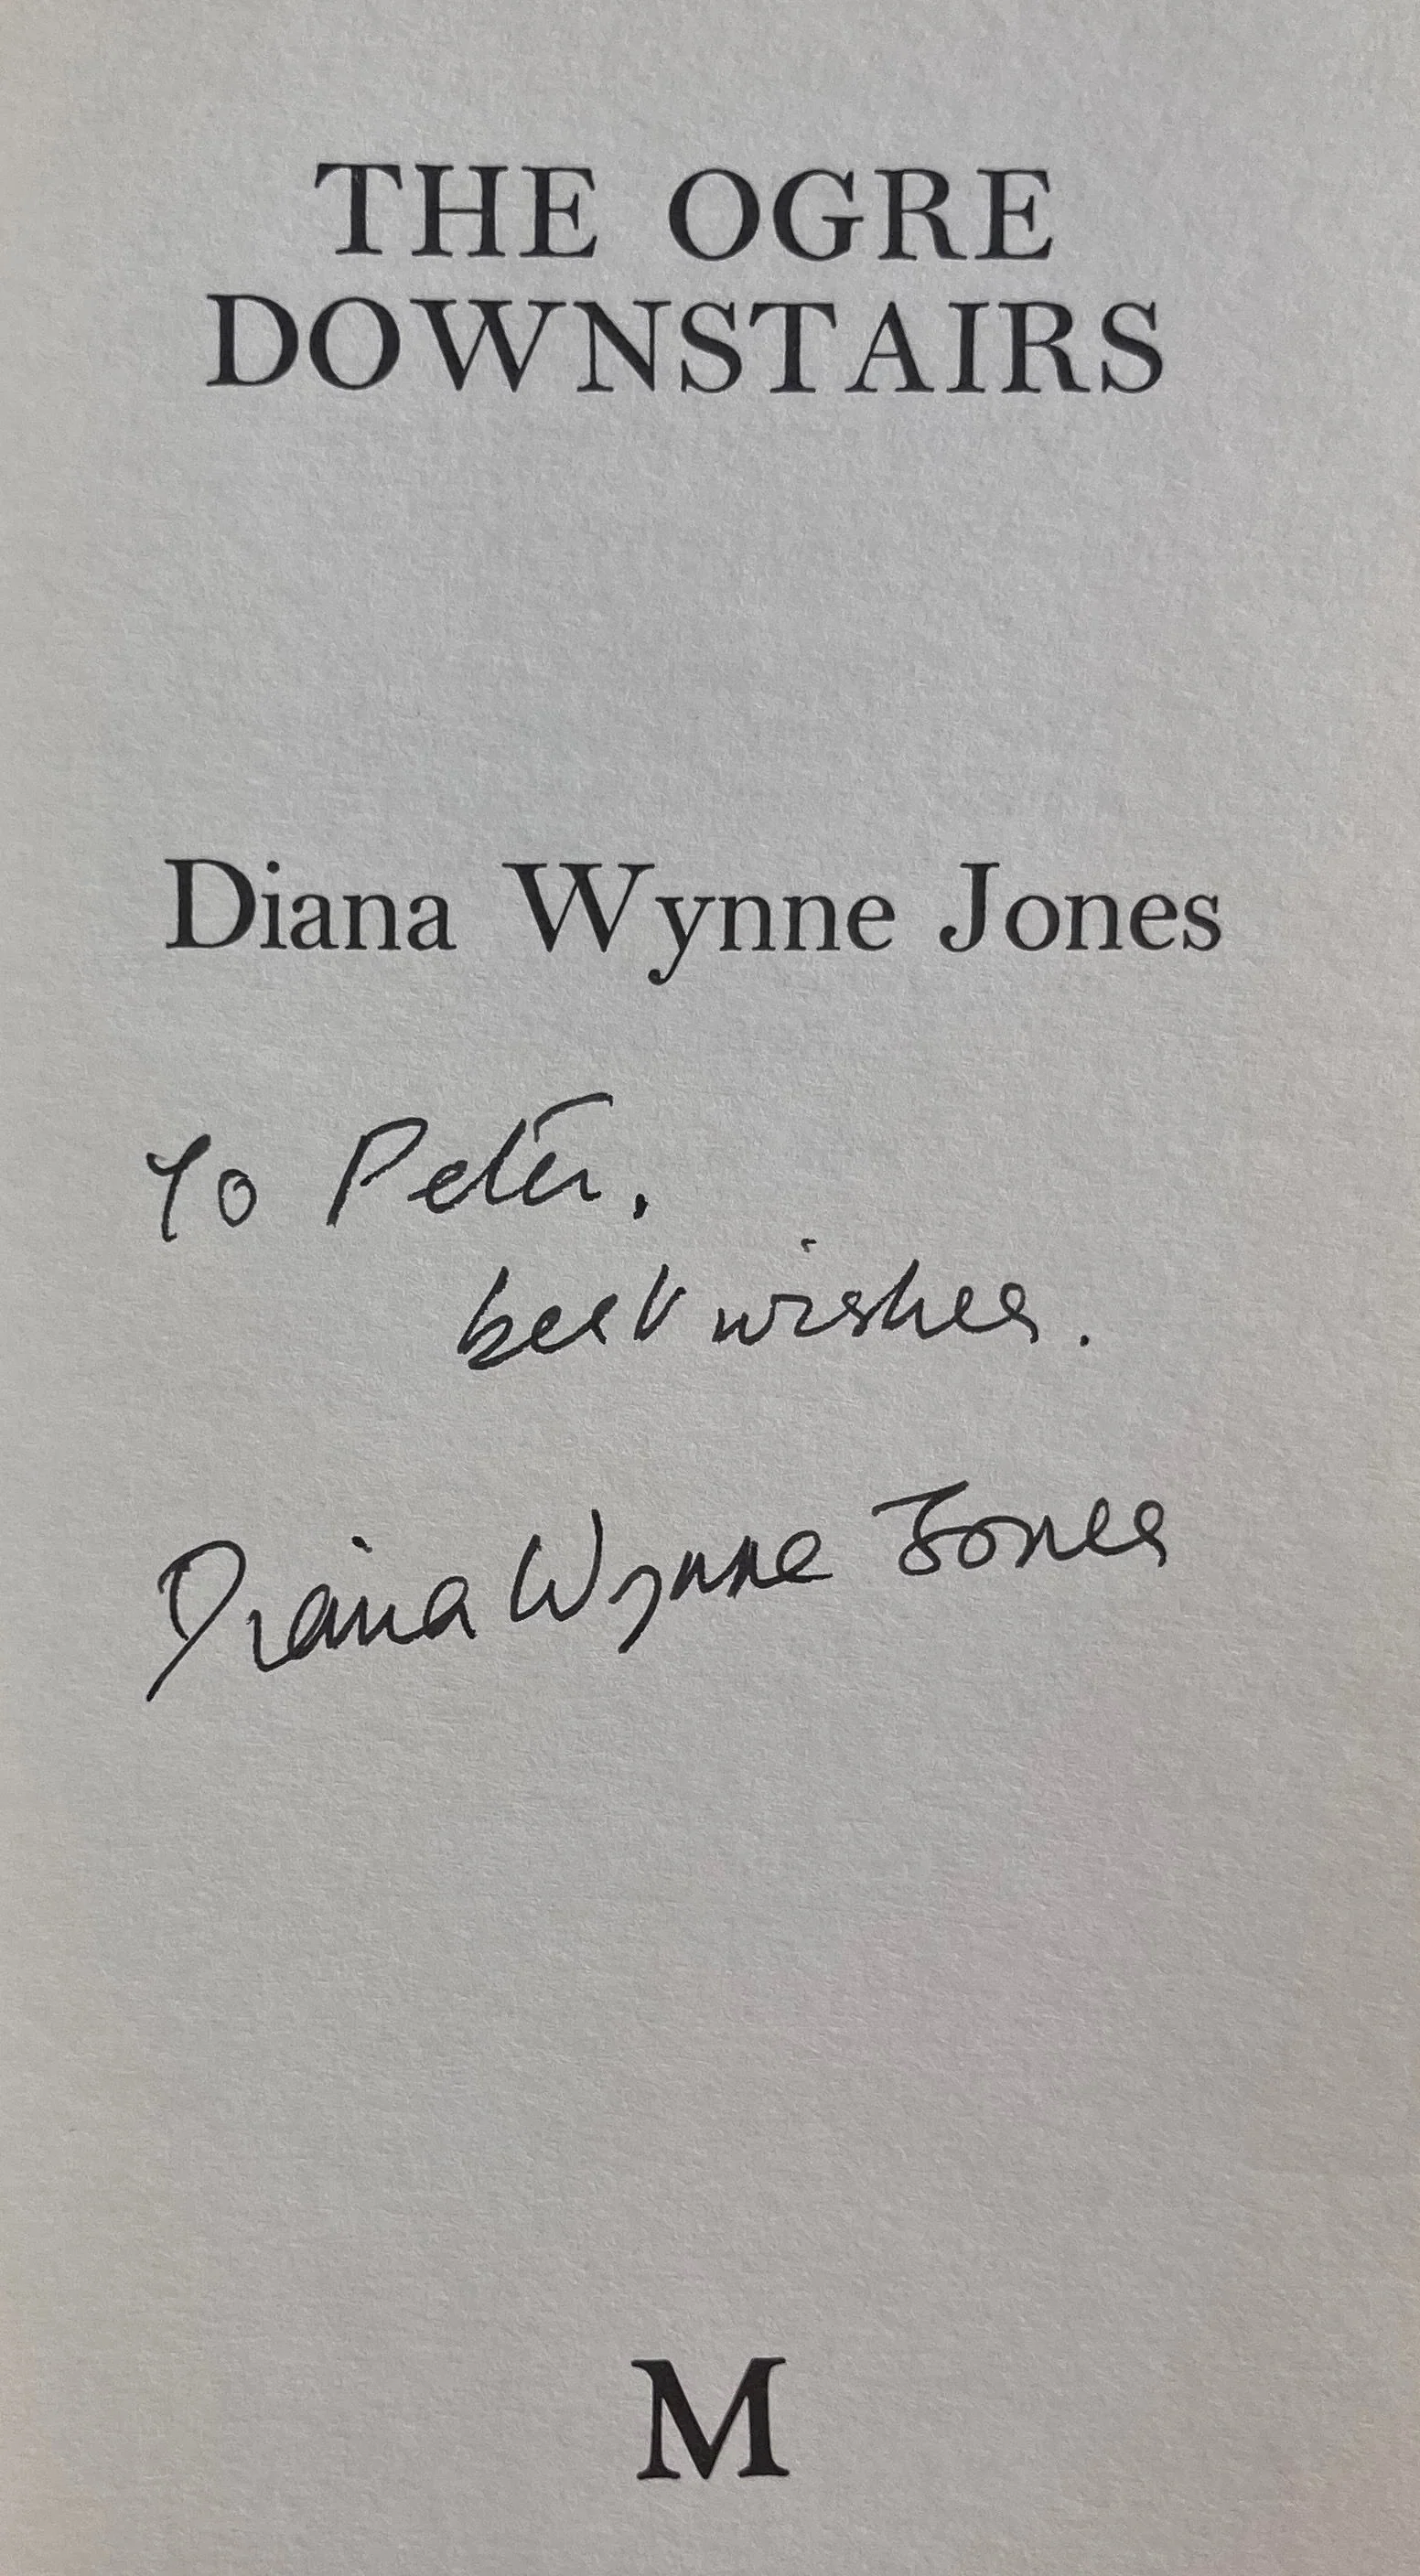 THE OGRE
DOWNSTAIRS
Diana Wynne Jones
To Peter,
best wishes.
Diana Wynne Jones
M